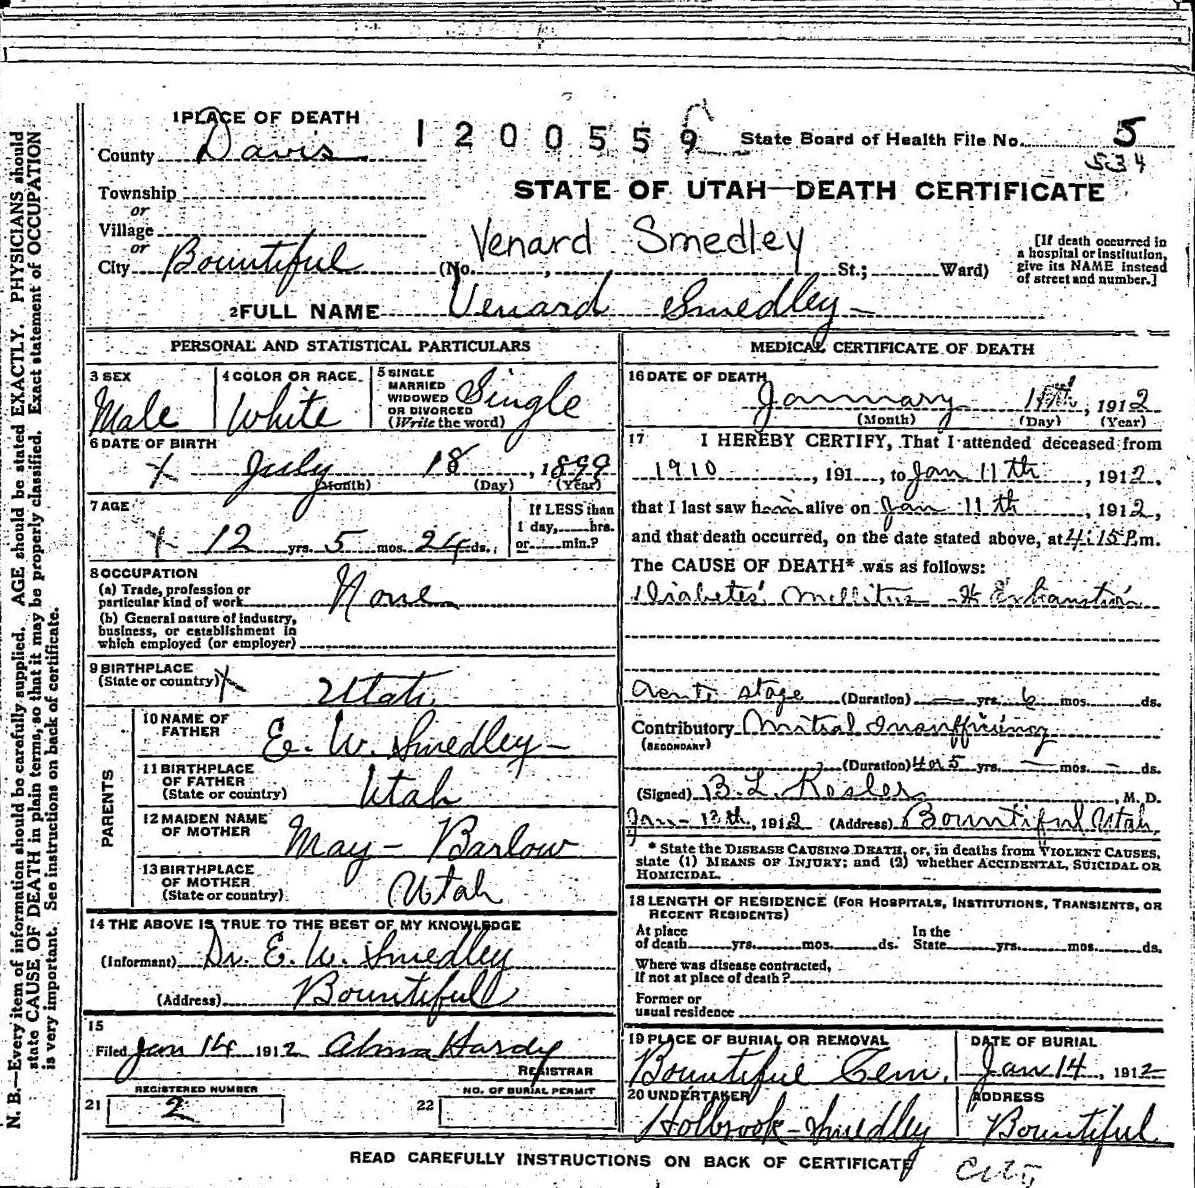 1 PLACE OF DEATH
County Davis
1200559
State Board of Health File No. 5
534
Township
or
Village
or
City Bountiful
STATE OF UTAH—DEATH CERTIFICATE
Venard Smedley
(No. , St.; Ward)
[If death occurred in
a hospital or institution,
give its NAME instead
of street and number.]
2 FULL NAME Venard Smedley
PERSONAL AND STATISTICAL PARTICULARS
3 SEX
Male
4 COLOR OR RACE
White
5 SINGLE
MARRIED
WIDOWED
OR DIVORCED
(Write the word)
Single
6 DATE OF BIRTH
X July 18, 1899
(Month) (Day) (Year)
7 AGE
X 12 yrs. 5 mos. 24 ds.
If LESS than
1 day, hrs.
or min.?
8 OCCUPATION
(a) Trade, profession or
particular kind of work None
(b) General nature of industry,
business, or establishment in
which employed (or employer)
9 BIRTHPLACE
(State or country) X Utah
PARENTS
10 NAME OF
FATHER
E. W. Smedley
11 BIRTHPLACE
OF FATHER
(State or country)
Utah
12 MAIDEN NAME
OF MOTHER
May Barlow
13 BIRTHPLACE
OF MOTHER
(State or country)
Utah
14 THE ABOVE IS TRUE TO THE BEST OF MY KNOWLEDGE
(Informant) Dr. E. W. Smedley
(Address) Bountiful
15
Filed Jan 14 1912 Alma Hardy
REGISTRAR
REGISTERED NUMBER
21 2
NO. OF BURIAL PERMIT
22
MEDICAL CERTIFICATE OF DEATH
16 DATE OF DEATH
January 11th, 1912
(Month) (Day) (Year)
17 I HEREBY CERTIFY, That I attended deceased from
1910, 191 , to Jan 11th, 1912,
that I last saw him alive on Jan 11th, 1912,
and that death occurred, on the date stated above, at 4:15 P.m.
The CAUSE OF DEATH* was as follows:
Diabetes Mellitus Exhaustion
stage (Duration) yrs. 6 mos. ds.
Contributory Mitral Insufficiency
(SECONDARY)
(Duration) 4 or 5 yrs. mos. ds.
(Signed) B. L. Kesler, M. D.
Jan 12th, 1912 (Address) Bountiful Utah
* State the DISEASE CAUSING DEATH, or, in deaths from VIOLENT CAUSES,
state (1) MEANS OF INJURY; and (2) whether ACCIDENTAL, SUICIDAL OR
HOMICIDAL.
18 LENGTH OF RESIDENCE (FOR HOSPITALS, INSTITUTIONS, TRANSIENTS, OR
RECENT RESIDENTS)
At place
of death yrs. mos. ds.
In the
State yrs. mos. ds.
Where was disease contracted,
if not at place of death?
Former or
usual residence
19 PLACE OF BURIAL OR REMOVAL
Bountiful Cem.
DATE OF BURIAL
Jan 14, 1912
20 UNDERTAKER
Holbrook-Smedley
ADDRESS
Bountiful
READ CAREFULLY INSTRUCTIONS ON BACK OF CERTIFICATE
N. B.—Every item of information should be carefully supplied. AGE should be stated EXACTLY. PHYSICIANS should
state CAUSE OF DEATH in plain terms, so that it may be properly classified. Exact statement of OCCUPATION
is very important. See instructions on back of certificate.